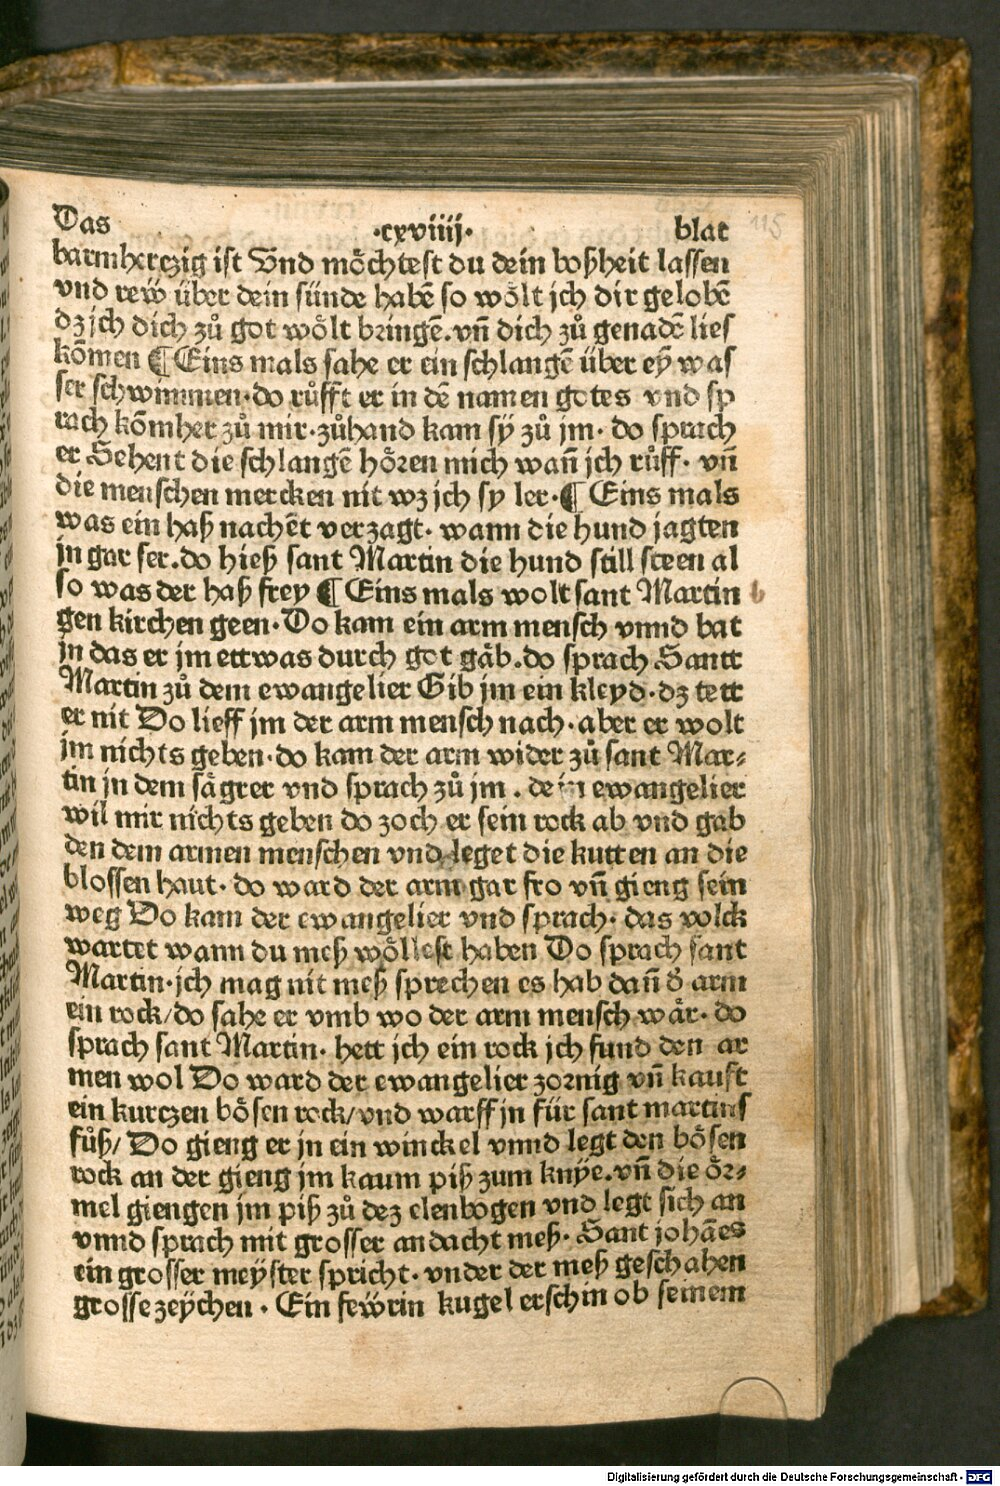 Das ·cxviiij· blat 115
barmhertzig ist Vnd möchtest du dein boßheit lassen
vnd reẅ über dein sünde habē so wölt jch dir gelobē
dz jch dich zů got wölt bringē. vñ dich zů genadē lies
kōmen ¶ Eins mals sahe er ein schlangē über eÿ was
ser schwimmen· do růfft er in dē namen gotes vnd sp
rach kōmher zů mir· zůhand kam sÿ zů jm· do sprach
er Sehent die schlangē hören mich wañ jch růff· vñ
die menschen mercken nit wz jch sy ler·¶ Eins mals
was ein haß nachēt verzagt· wann die hund jagten
jn gar ser. do hieß sant Martin die hund still steen al
so was der haß frey ¶ Eins mals wolt sant Martin
gen kirchen geen· Do kam ein arm mensch vnnd bat
jn das er jm ettwas durch got gäb. do sprach Santt
Martin zů dem ewangelier Gib jm ein kleyd· dz tett
er nit Do lieff jm der arm mensch nach· aber er wolt
jm nichts geben· do kam der arm wider zů sant Mar⸗
tin jn dem sägrer vnd sprach zů jm . dein ewangelier
wil mir nichts geben do zoch er sein rock ab vnd gab
den dem armen menschen vnd leget die kutten an die
blossen haut· do ward der arm gar fro vñ gieng sein
weg Do kam der ewangelier vnd sprach· das volck
wartet wann du meß wöllest haben Do sprach sant
Martin· jch mag nit meß sprechen es hab dañ d̓ arm
ein rock/ do sahe er vmb wo der arm mensch wär· do
sprach sant Martin· hett jch ein rock jch fund den ar
men wol Do ward der ewangelier zornig vñ kauft
ein kurtzen bösen rock/ vnd warff jn für sant martins
füß/ Do gieng er jn ein winckel vnnd legt den bösen
rock an der gieng jm kaum piß zum knÿe. vñ die ör⸗
mel giengen jm piß zů dez elenbogen vnd legt sich an
vnnd sprach mit grosser andacht meß· Sant johāes
ein grosser meÿster spricht· vnder der meß geschahen
grosse zeÿchen · Ein feẅrin kugel erschin ob seinem
Digitalisierung gefördert durch die Deutsche Forschungsgemeinschaft - DFG